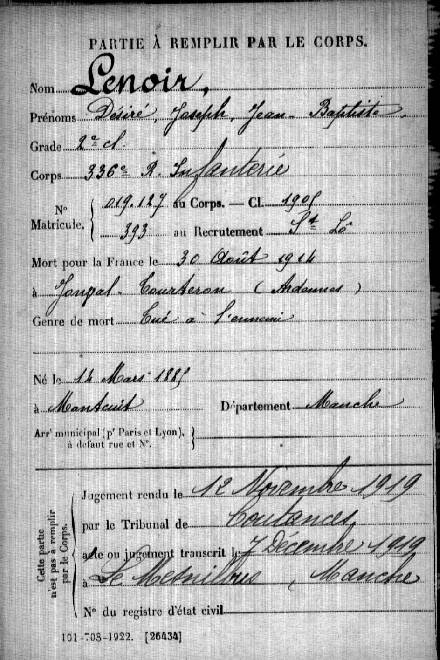 PARTIE À REMPLIR PAR LE CORPS.
Nom Lenoir,
Prénoms Désiré, Joseph, Jean-Baptiste.
Grade 2e cl.
Corps 336e R. Infanterie
No Matricule. 019.127 au Corps. — Cl. 1905
393 au Recrutement St Lô
Mort pour la France le 30 Août 1914
à Courteron (Ardennes)
Genre de mort Tué à l'ennemi
Né le 14 Mars 1885
à Département Manche
Arrt municipal (pr Paris et Lyon),
à défaut rue et No.
Cette partie
n'est pas à remplir
par le Corps.
Jugement rendu le 12 Novembre 1919
par le Tribunal de Coutances
acte ou jugement transcrit le 7 Décembre 1919
à Le Mesnilbus, Manche
No du registre d'état civil
101-708-1922. [26434]